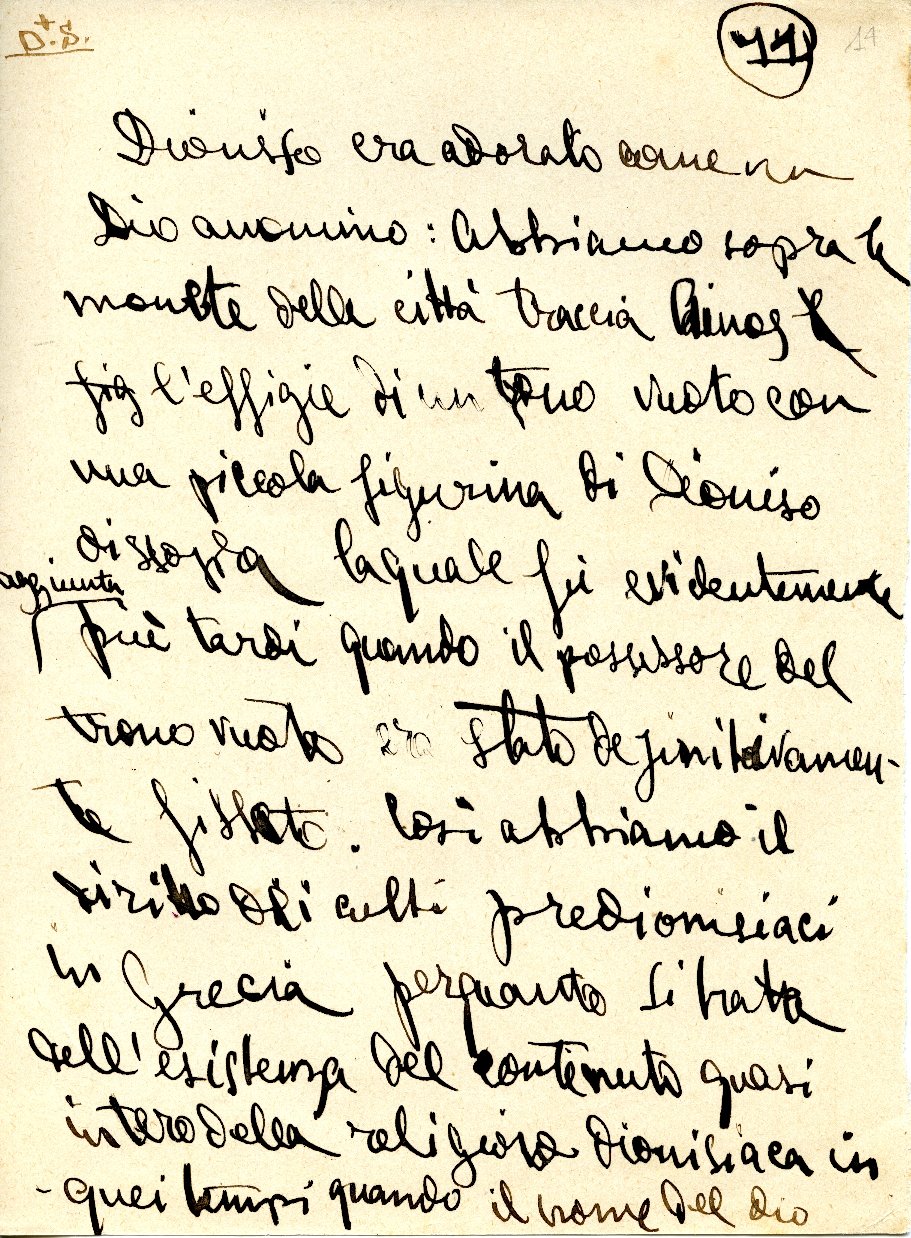 D.S.
11
14
Dionisso era adorato come un
Dio anonimo: Abbiamo sopra le
monete della città traccia Ainos
fig l'effigie di un trono vuoto con
una piccola figurina di Dioniso
dissopra laquale fu evidentemente
aggiunta
più tardi quando il possessore del
trono vuoto era stato definitivamen-
te fissato. Così abbiamo il
diritto di culti predionisiaci
in Grecia perquanto si tratta
dell'esistenza del contenuto quasi
intero della religiose dionisiaca in
quei tempi quando il nome del dio